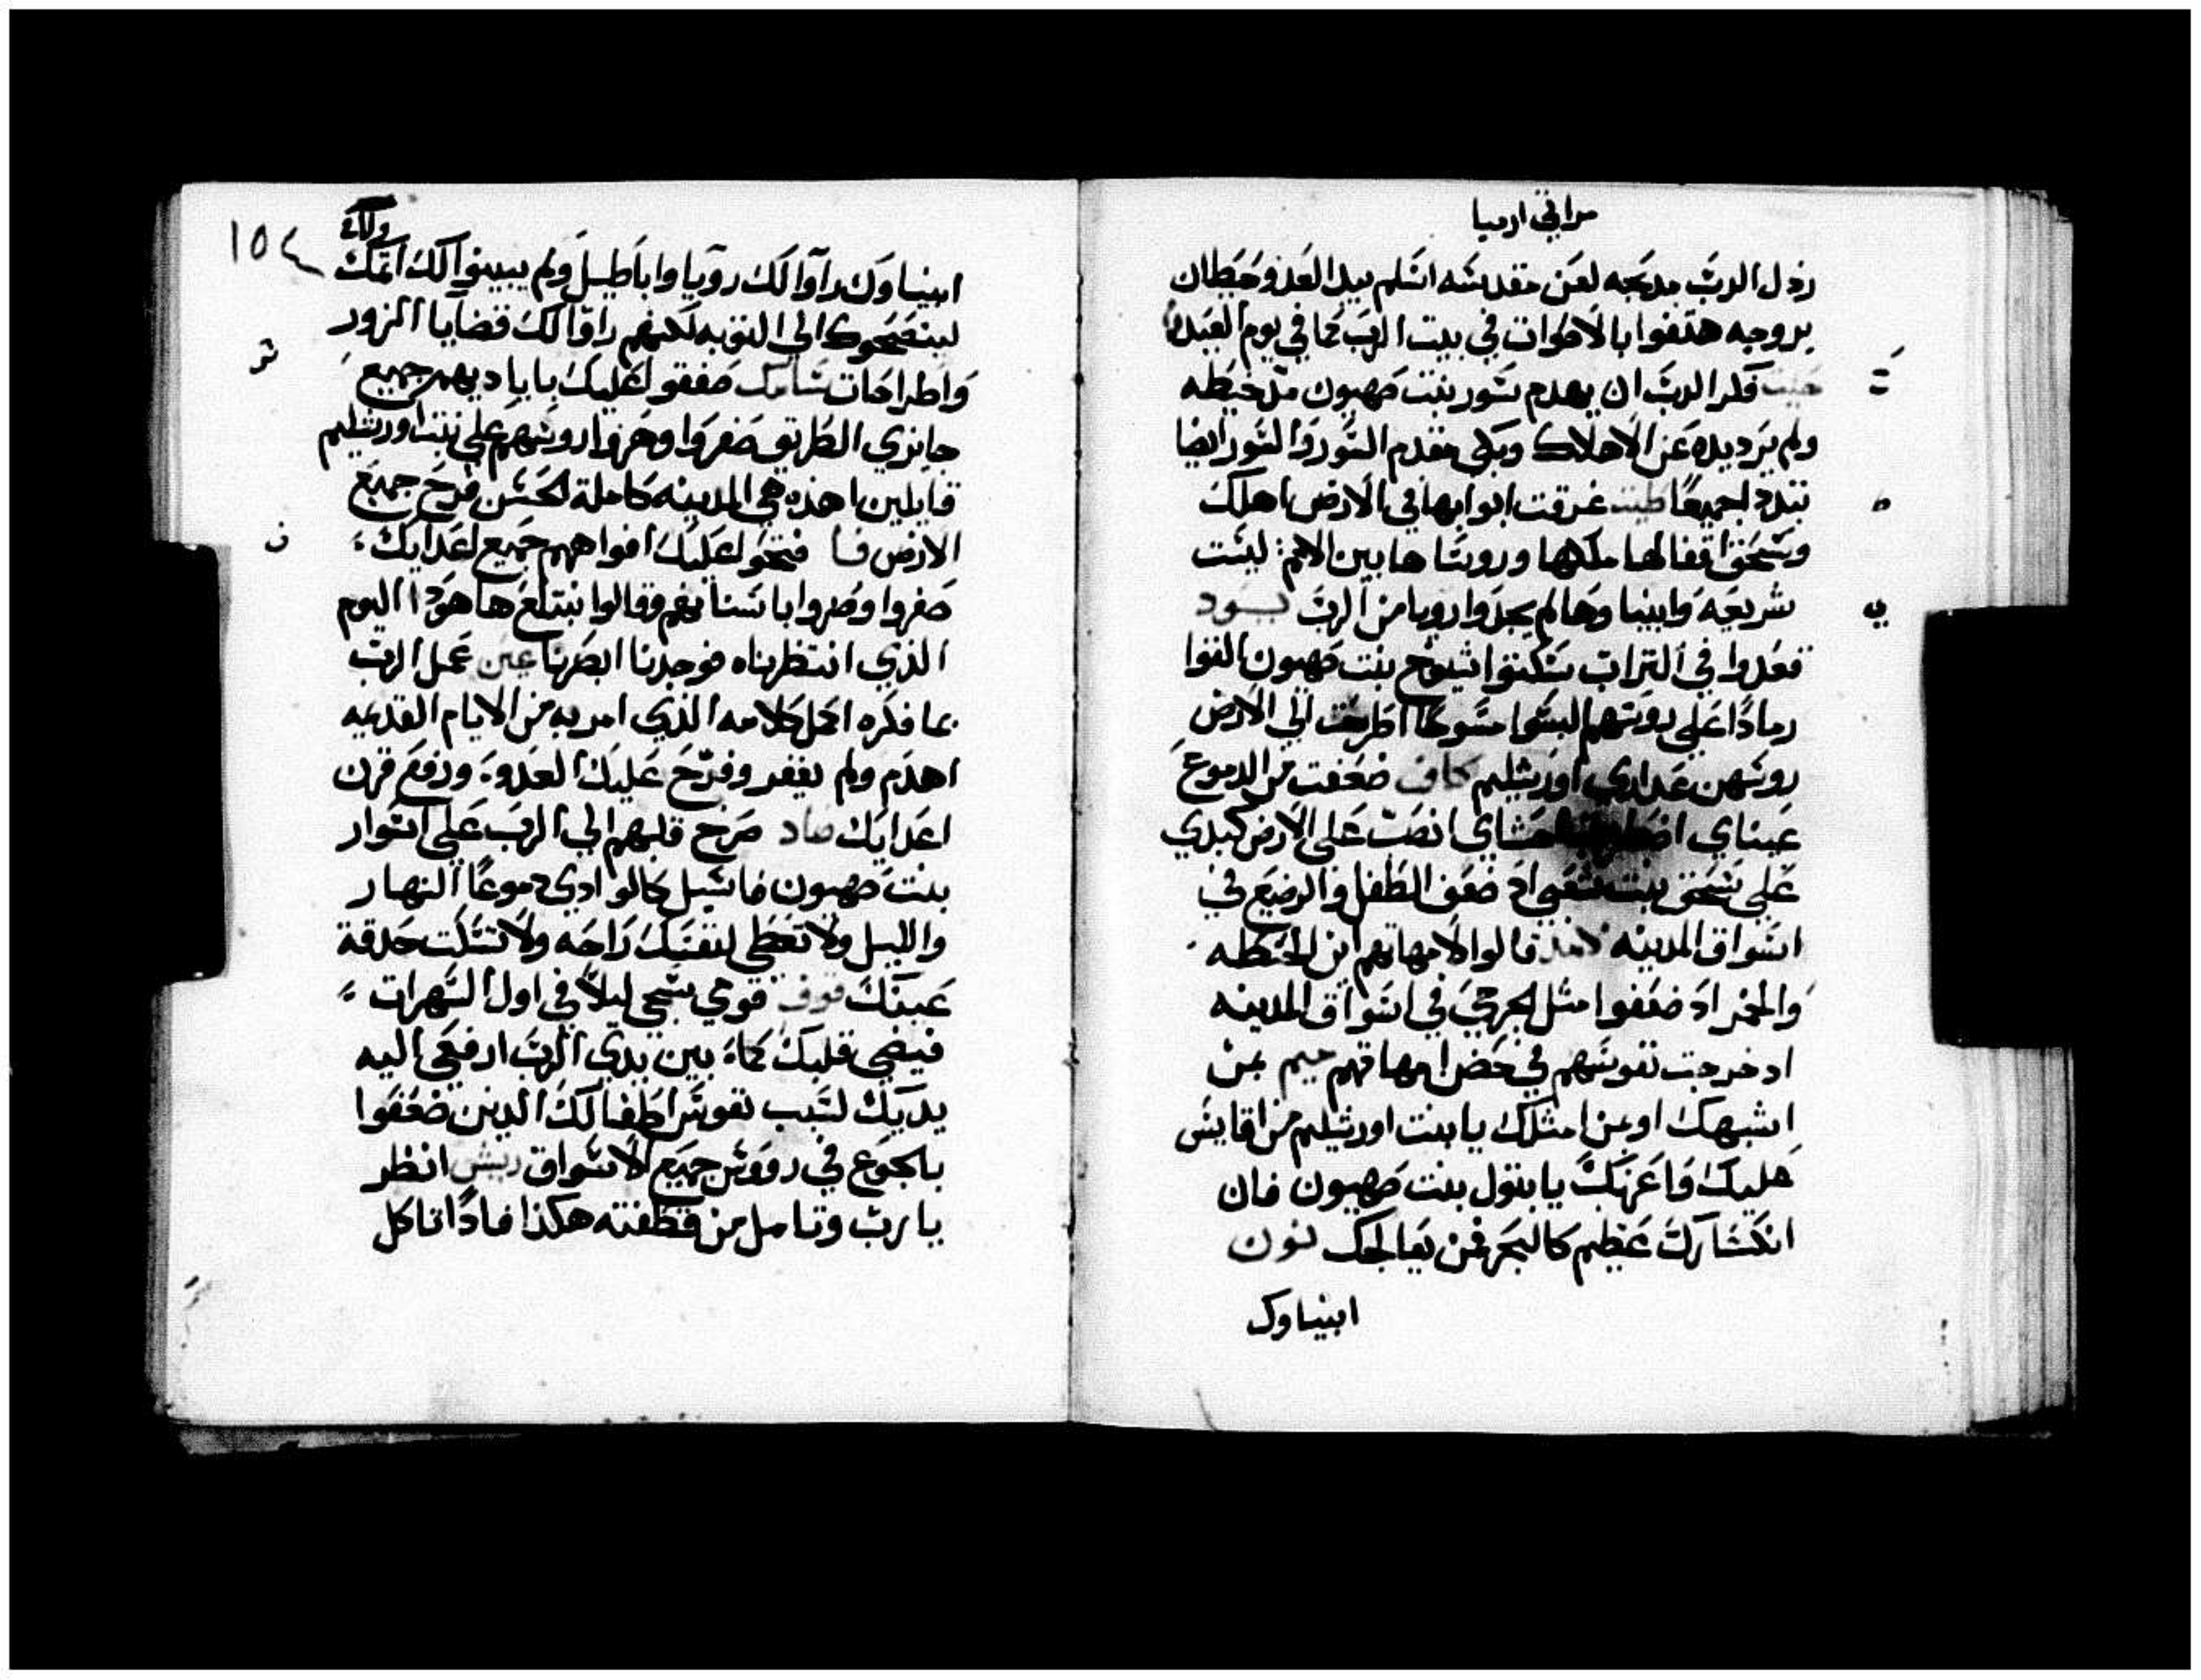 مراتي ارميا
رذل الرب مدبحه لعن مقدسه اسلم بيد العدو حيطان
بروجه هتفوا بالاصوات في بيت الرب كما في يوم العيد
حيث فكر الرب ان يهدم سور بنت صهيون مد خيطه
ولم يرد يده عن الاهلاك وبكى مقدم السور والسور ايضا
تبدد جميعًا طيت غرقت ابوابها في الارض اهلك
وسحق اقفالها ملكها وروسا ها بين الامم: ليست
شريعه وانبيا وها لم يجدوا رويا من الرب يـود
قعدوا في التراب سكتوا شيوخ بنت صهيون القوا
رمادًا على روسهم لبسوا مسوحًا اطرقت الي الارض
روسهن عداري اورشليم كاف ضعفت من الدموع
عيناي احشاي انصب على الارض كبدي
على سحق بنت شعبي اد ضعف الطفل والرضيع في
اسواق المدينه لامد قالوا لامهاتهم اين الحنطه
والخمر اد ضعفوا مثل الجرحي في اسواق المدينه
اد خرجت نفوسهم في حضن امهاتهم ميم بمن
اشبهك او بمن امثلك يا بنت اورشليم من اقايس
عليك واعزيك يا بتول بنت صهيون فان
انكسارك عظيم كالبحر فمن يعالجك نون
انبياوك
١٥٤
انبياوك راوا لك رويا واباطيل ولم يبينوا لك اتمك
لينصحوك الي التوبه لكنهم راوا لك قضايا الزور
واطراحات سامك صفقوا عليك باياديهم جميع
جايزي الطريق صفروا وهزوا روسهم على بنت اورشليم
قايلين اهذه هي المدينه كاملة الحسن فرح جميع
الارض فا فتحوا عليك افواههم جميع اعدايك
صفروا وصروا باسنانهم وقالوا نبتلع ها هودا اليوم
الذي انتظرناه فوجدنا ابصرنا عين عمل الرب
بما فكره اكمل كلامه الذي امر به من الايام القديمه
اهدم ولم يغفر وفرح عليك العدو ورفع قرن
اعدايك صاد صرخ قلبهم الي الرب على اسوار
بنت صهيون فاسيل كالوادي دموعًا النهار
والليل ولا تعطي لنفسك راحه ولا تسكت حدقة
عينك قوف قومي سبحي ليلاً في اول السهرات
فيضي قلبك كماء بين يدي الرب ارفعي اليه
يديك لسبب نفوس اطفالك الدين ضعفوا
بالجوع في رووس جميع الاسواق ريش انظر
يا رب وتامل من قطفته هكذا فادًا تاكل